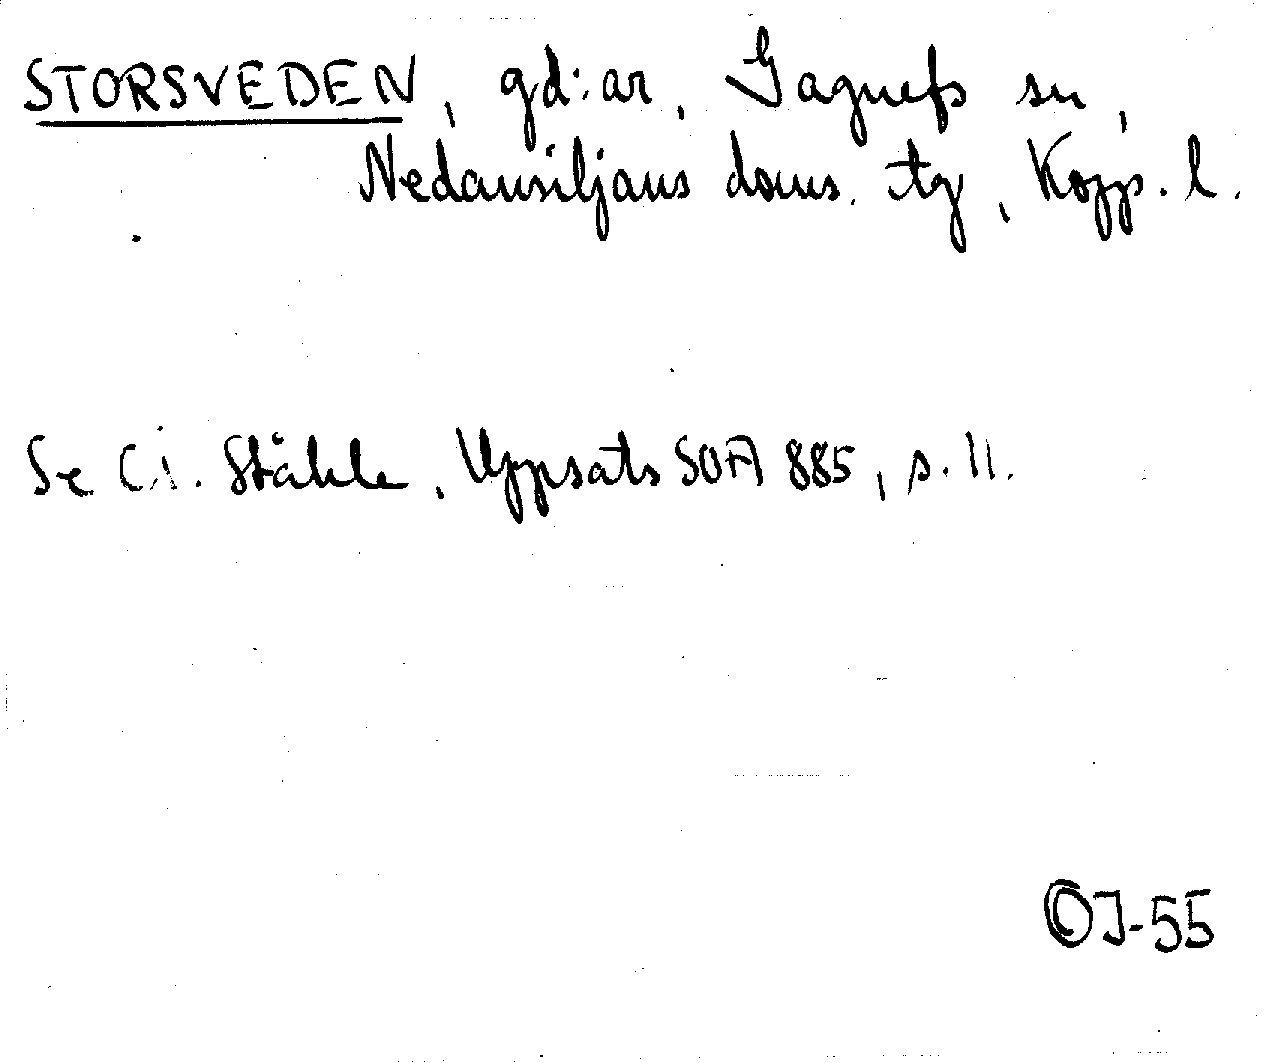 STORSVEDEN, gd:ar, Gagnefs sn,
Nedansiljans doms. tg, Kopp. l.
Se C.I. Ståhle, Uppsats SOFA 885, s. 11.
OJ-55